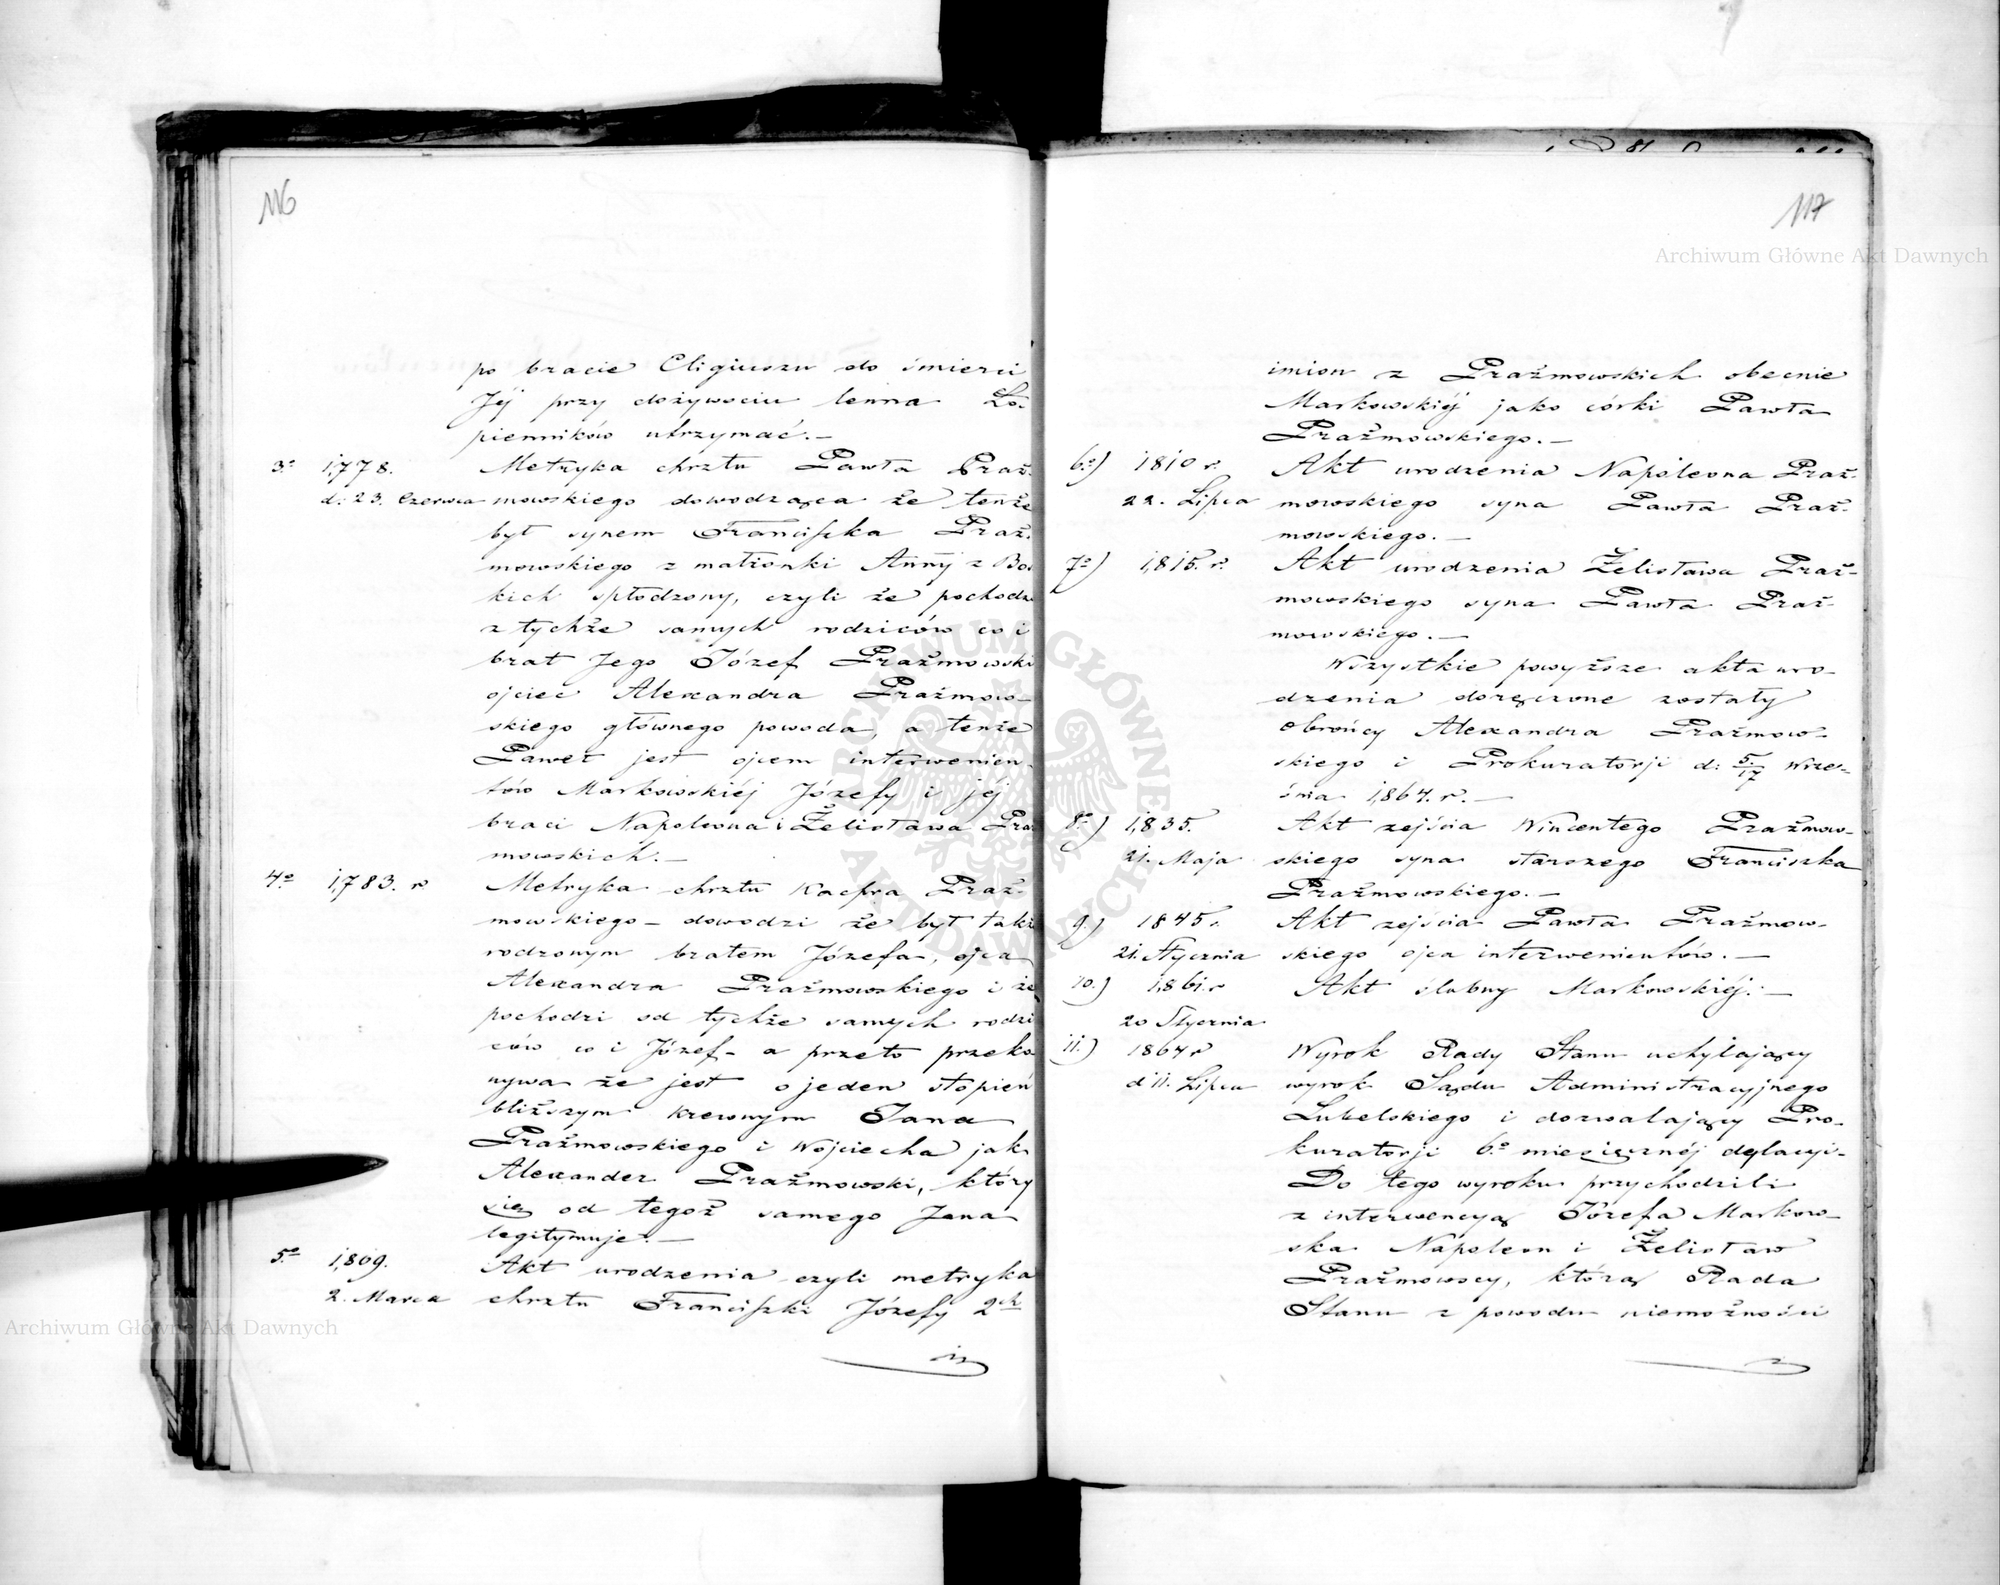 116
po bracie Eligiuszu do śmierci
Jéj przy dożywociu lenna Ło-
pienników utrzymać.—
3o 1,778. Metryka chrztu Pawła Praż-
d: 23. Czerwca mowskiego dowodząca że tenże
był synem Franciszka Praż-
mowskiego z małżonki Anny z Bo-
kich spłodzony, czyli że pochodzi
z tychże samych rodziców co i
brat Jego Józef Prażmowski
ojciec Alexandra Prażmow-
skiego głównego powoda, a tenże
Paweł jest ojcem interwenien-
tów Markowskiéj Józefy i jéj
braci Napoleona i Żelisława Praż
mowskich.—
4o 1,783. r Metryka chrztu Kacpra Praż-
mowskiego — dowodzi że był także
rodzonym bratem Józefa, ojca
Alexandra Prażmowskiego i że
pochodzi od tychże samych rodzi
ców co i Józef — a przeto przeko
nywa że jest o jeden stopień
bliższym krewnym Jana
Prażmowskiego i Wojciecha jak
Alexander Prażmowski, który
się od tegoż samego Jana
legitymuje.—
5o 1,809. Akt urodzenia czyli metryka
2. Marca chrztu Franciszki Józefy 2ch
117
imion z Prażmowskich obecnie
Markowskiéj jako córki Pawła
Prażmowskiego.—
6o) 1810 r. Akt urodzenia Napoleona Praż-
22. Lipca mowskiego syna Pawła Praż-
mowskiego.—
7o) 1,815. r. Akt urodzenia Żelisława Praż-
mowskiego syna Pawła Praż-
mowskiego.—
Wszystkie powyższe akta uro-
dzenia doręczone zostały
obrońcy Alexandra Prażmow-
skiego i Prokuratorji d: 5/17 Wrze-
śnia 1,864. r.—
8o) 1,835. Akt zejścia Wincentego Prażmow-
21. Maja skiego syna starszego Franciszka
Prażmowskiego.—
9.) 1845 r. Akt zejścia Pawła Prażmow-
21. Stycznia skiego ojca interwenientów.—
10.) 1,861. r Akt ślubny Markowskiéj.—
20 Stycznia
11.) 1864 r Wyrok Rady Stanu uchylający
d 11. Lipca wyrok Sądu Administracyjnego
Lubelskiego i dozwalający Pro-
kuratorji 6o miesięcznéj dylacyi.
Do tego wyroku przychodzili
z interwencyą Józefa Markow-
ska Napoleon i Żelisław
Prażmowscy, którą Rada
Stanu z powodu niemożności
Archiwum Główne Akt Dawnych
Archiwum Główne Akt Dawnych
ARCHIWUM GŁÓWNE AKT DAWNYCH